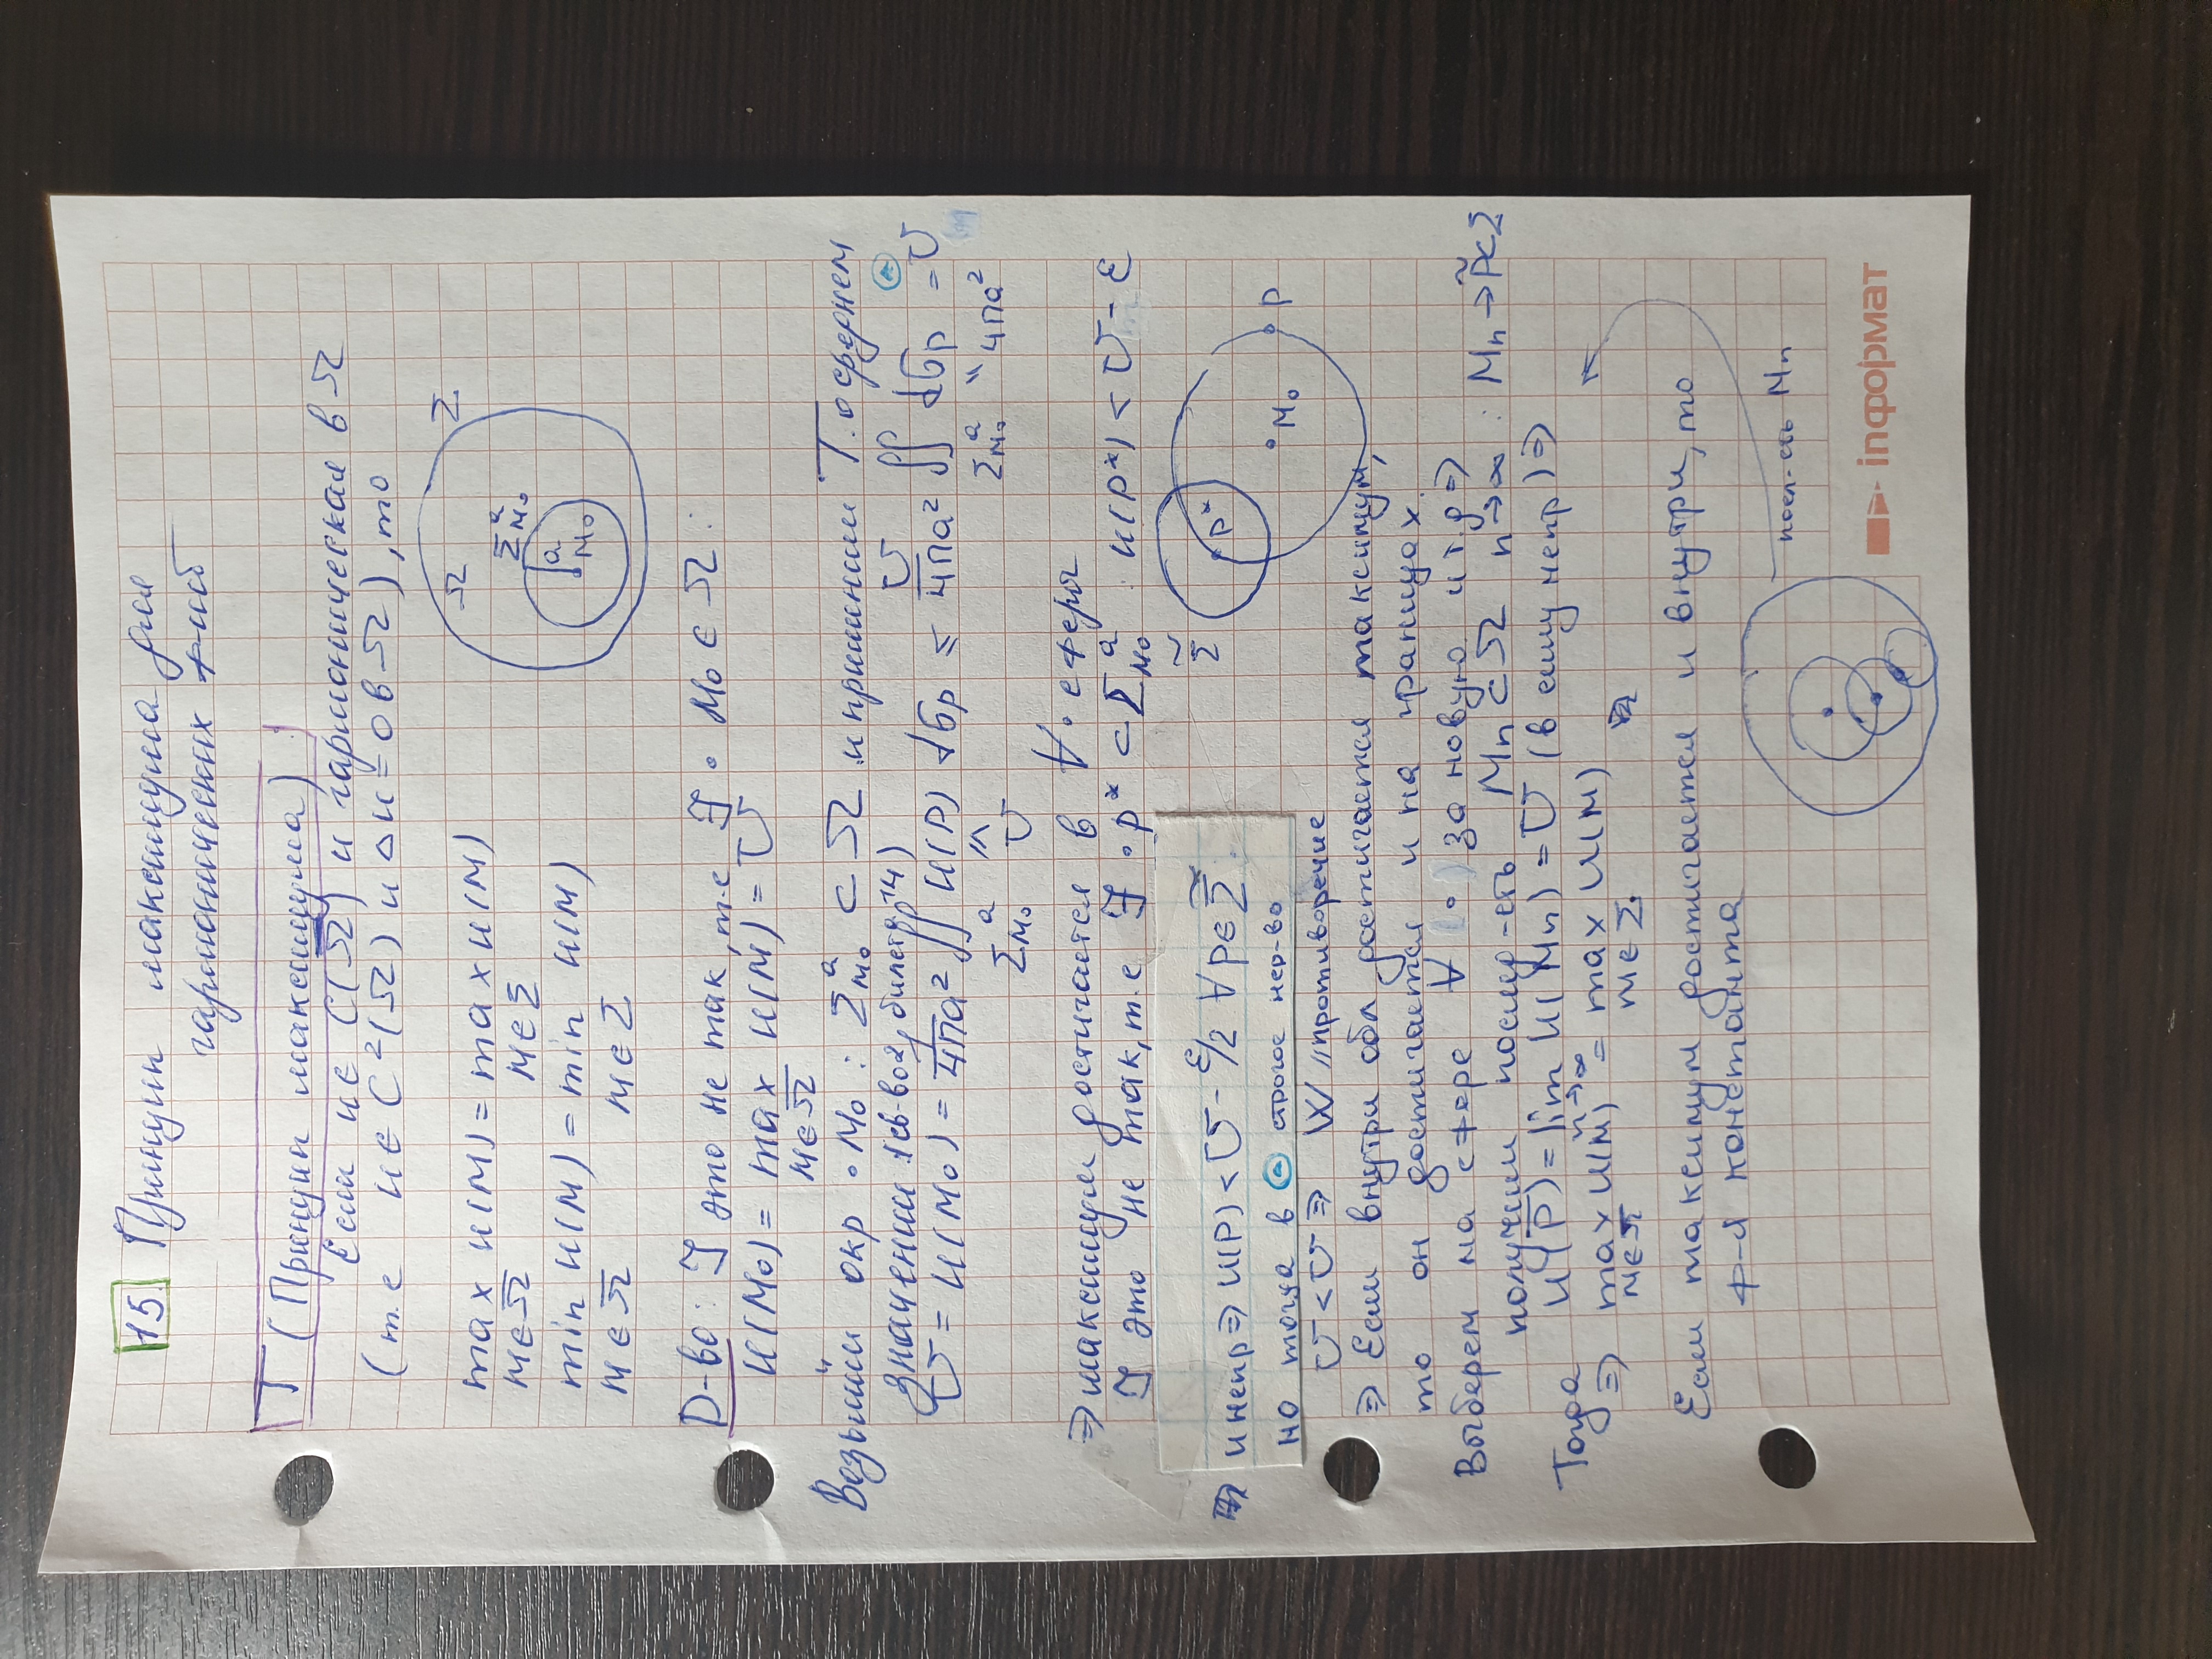 15 Принцип максимума для
гармонических ф-ий
Т (Принцип максимума)
Если u∈C(Ω̅) и гармоническая в Ω
(т.е u∈C²(Ω) и Δu=0 в Ω), то
max u(M) = max u(M)
M∈Ω̅ M∈Σ
min u(M) = min u(M)
M∈Ω̅ M∈Σ
Ω Σ
Σ^a_{M₀}
a
M₀
D-во: ∃ это не так, т.е ∃ • M₀∈Ω:
u(M₀) = max u(M) = U
M∈Ω̅
Возьмём окр • M₀: Σ^a_{M₀} ⊂ Ω и применим Т. о среднем
значении (св-во 2, билет 14)
U = u(M₀) = 1/4πa² ∬ u(P) dσp ≤ U/4πa² ∬ dσp = U
Σ^a_{M₀} U Σ^a_{M₀} 4πa²
⇒ максимум достигается в ∀ • сферы
∃ это не так, т.е ∃ • P* ⊂ Σ^a_{M₀} : u(P*) < U - ε
⇒ u непр ⇒ u(P) < U - ε/2 ∀ P∈Σ̃
но тогда в строгое нер-во
U < U ⇒ W // противоречие
Σ̃
P*
• M₀
P
⇒ Если внутри обл достигается максимум,
то он достигается и на границах
Выберем на сфере ∀ (•) за новую и т.д ⇒
получим посл-еть Mn ⊂ Ω n→∞ : Mn → P̃ ⊂ Σ
Тогда u(P̃) = lim u(Mn) = U (в силу непр) ⇒
n→∞
⇒ max u(M) = max u(M)
M∈Ω̅ M∈Σ
Если максимум достигается и внутри, то
ф-я константа
посл-ть Mn
inформат